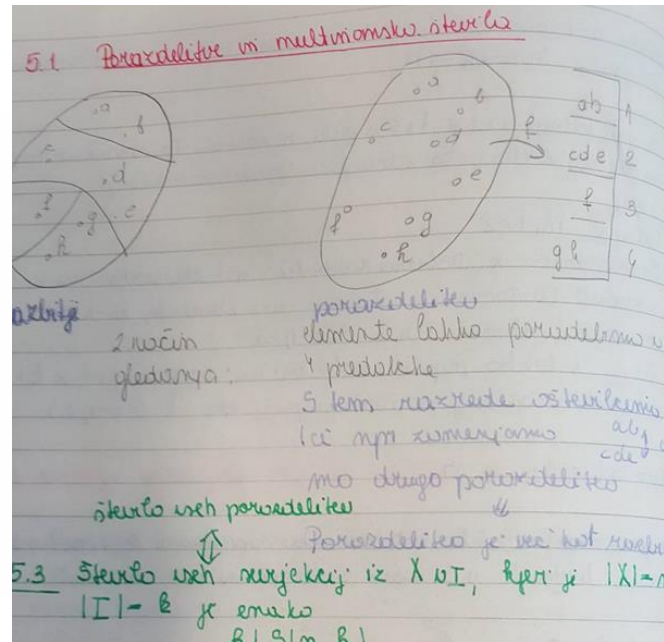 5.1 Porazdelitve in multinomska števila
a
b
c
d
e
f
g
h
a
b
c
d
e
f
g
h
f
ab 1
cde 2
f 3
gh 4
porazdelitev
2 način elemente lahko porazdelimo v
gledanja: 4 predalčke
S tem razrede oštevilčimo
zamenjamo ab
cde
mo drugo porazdelitev
število vseh porazdelitev
Porazdelitev je več kot
5.3 Število vseh surjekcij iz X v I, kjer je |X|=n
|I|= k je enako
k! S(n, k)